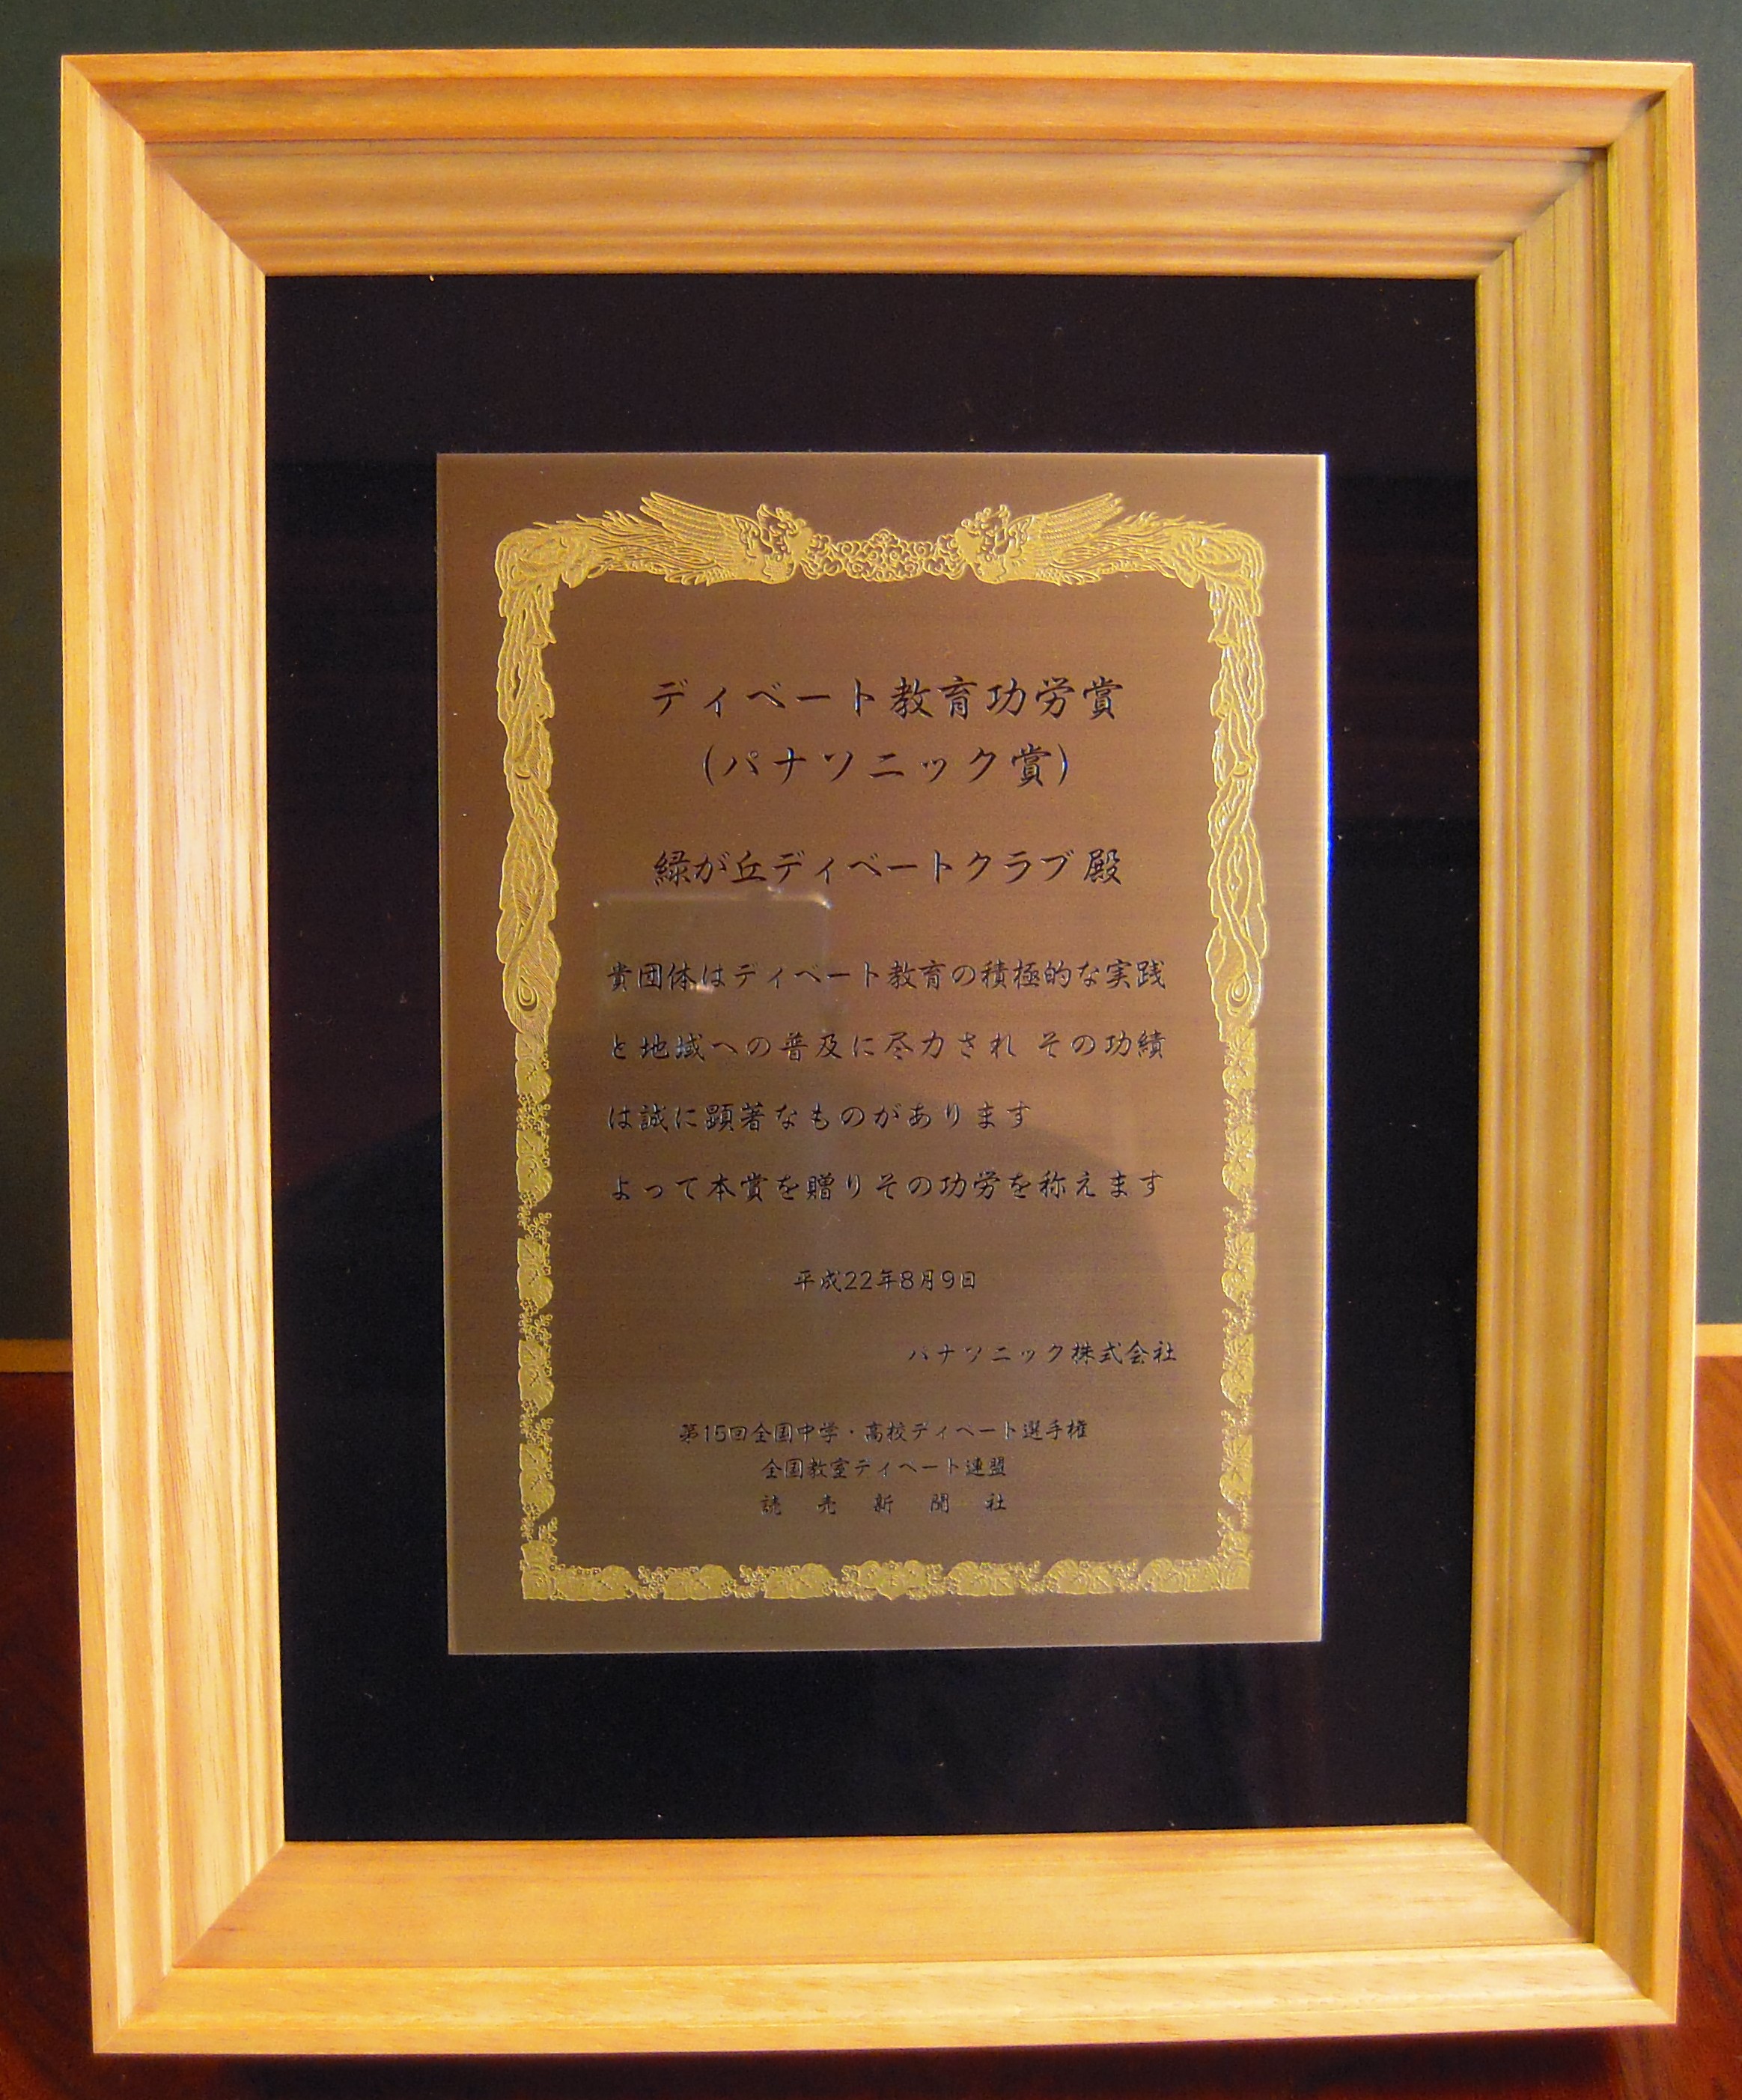 ディベート教育功労賞
(パナソニック賞)
緑が丘ディベートクラブ 殿
貴団体はディベート教育の積極的な実践
と地域への普及に尽力され その功績
は誠に顕著なものがあります
よって本賞を贈りその功労を称えます
平成22年8月9日
パナソニック株式会社
第15回全国中学・高校ディベート選手権
全国教室ディベート連盟
読売新聞社